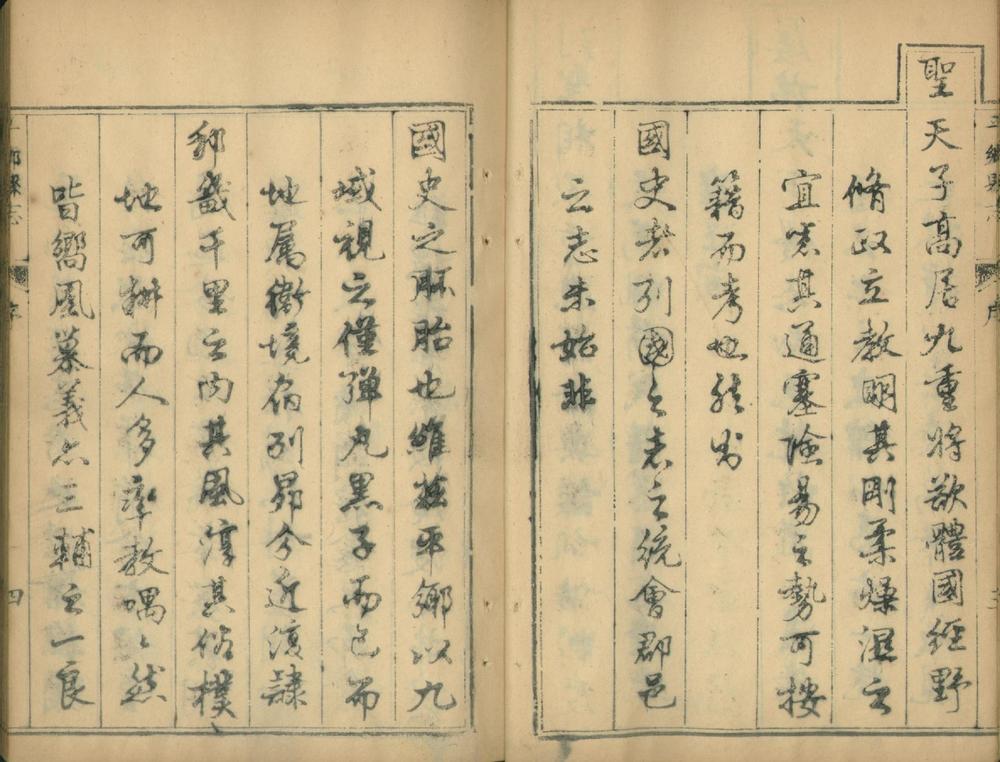 聖天子高居九重將欲體國經野
脩政立教明其剛柔燥濕之
宜悉其通塞險易之勢可按
籍而考也然則
國史者列國之志之統會郡邑
之志未始非
國史之胚胎也維茲平鄉以九
域視之僅彈丸黑子而已而
地屬衛境宿列昴今近復隸
邦畿千里之內其風淳其俗樸
地可耕而人多率教喁〻然
皆嚮風慕義亦三輔之一良
平鄉縣志
序
三
平鄉縣志
序
四